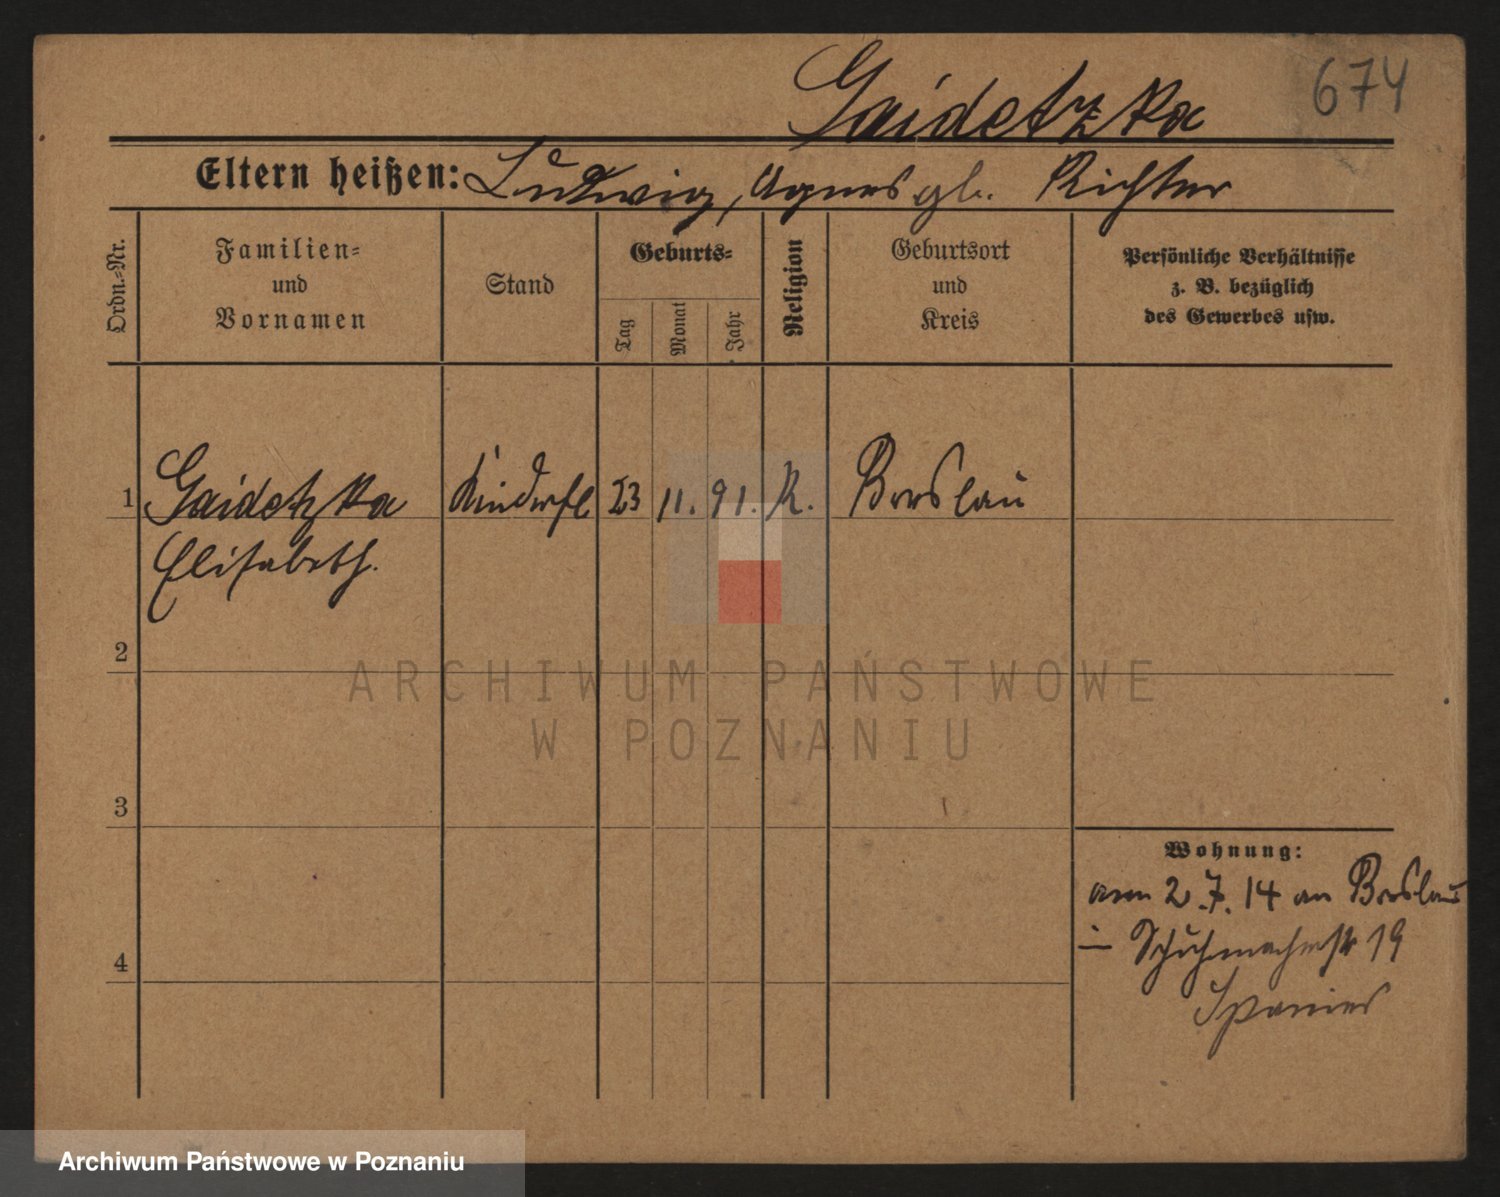 Gaidetzka 674
Eltern heißen: Ludwig, Agnes gb. Richter
Ordn.-Nr.
Familien-
und
Vornamen
Stand
Geburts-
Tag
Monat
Jahr
Religion
Geburtsort
und
Kreis
Persönliche Verhältnisse
z. B. bezüglich
des Gewerbes usw.
1 Gaidetzka Kinderfl 23 11. 91. K. Breslau
Elisabeth.
2
3
4
Wohnung:
2.7.14 Breslau
Schuhmacherstr 19
Spanier
ARCHIWUM PAŃSTWOWE
W POZNANIU
Archiwum Państwowe w Poznaniu